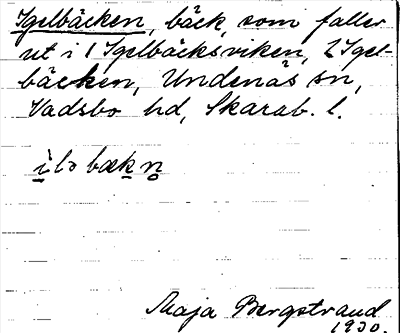 Igelbäcken, bäck, som faller
ut i 1 Igelbäcksviken, 2 Igel-
bäcken, Undenäs sn,
Vadsbo hd, Skarab. l.
ìlə bækn̥
Maja Bergstrand
1930.